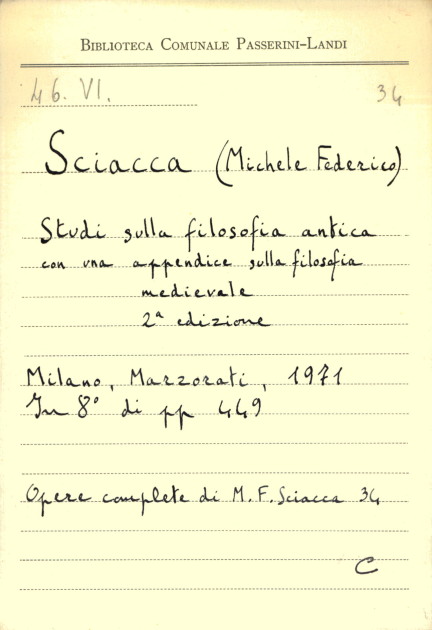 BIBLIOTECA COMUNALE PASSERINI-LANDI
46. VI. 34
Sciacca (Michele Federico)
Studi sulla filosofia antica
con una appendice sulla filosofia
medievale
2ª edizione
Milano, Marzorati, 1971
In 8° di pp 449
Opere complete di M. F. Sciacca 34
C